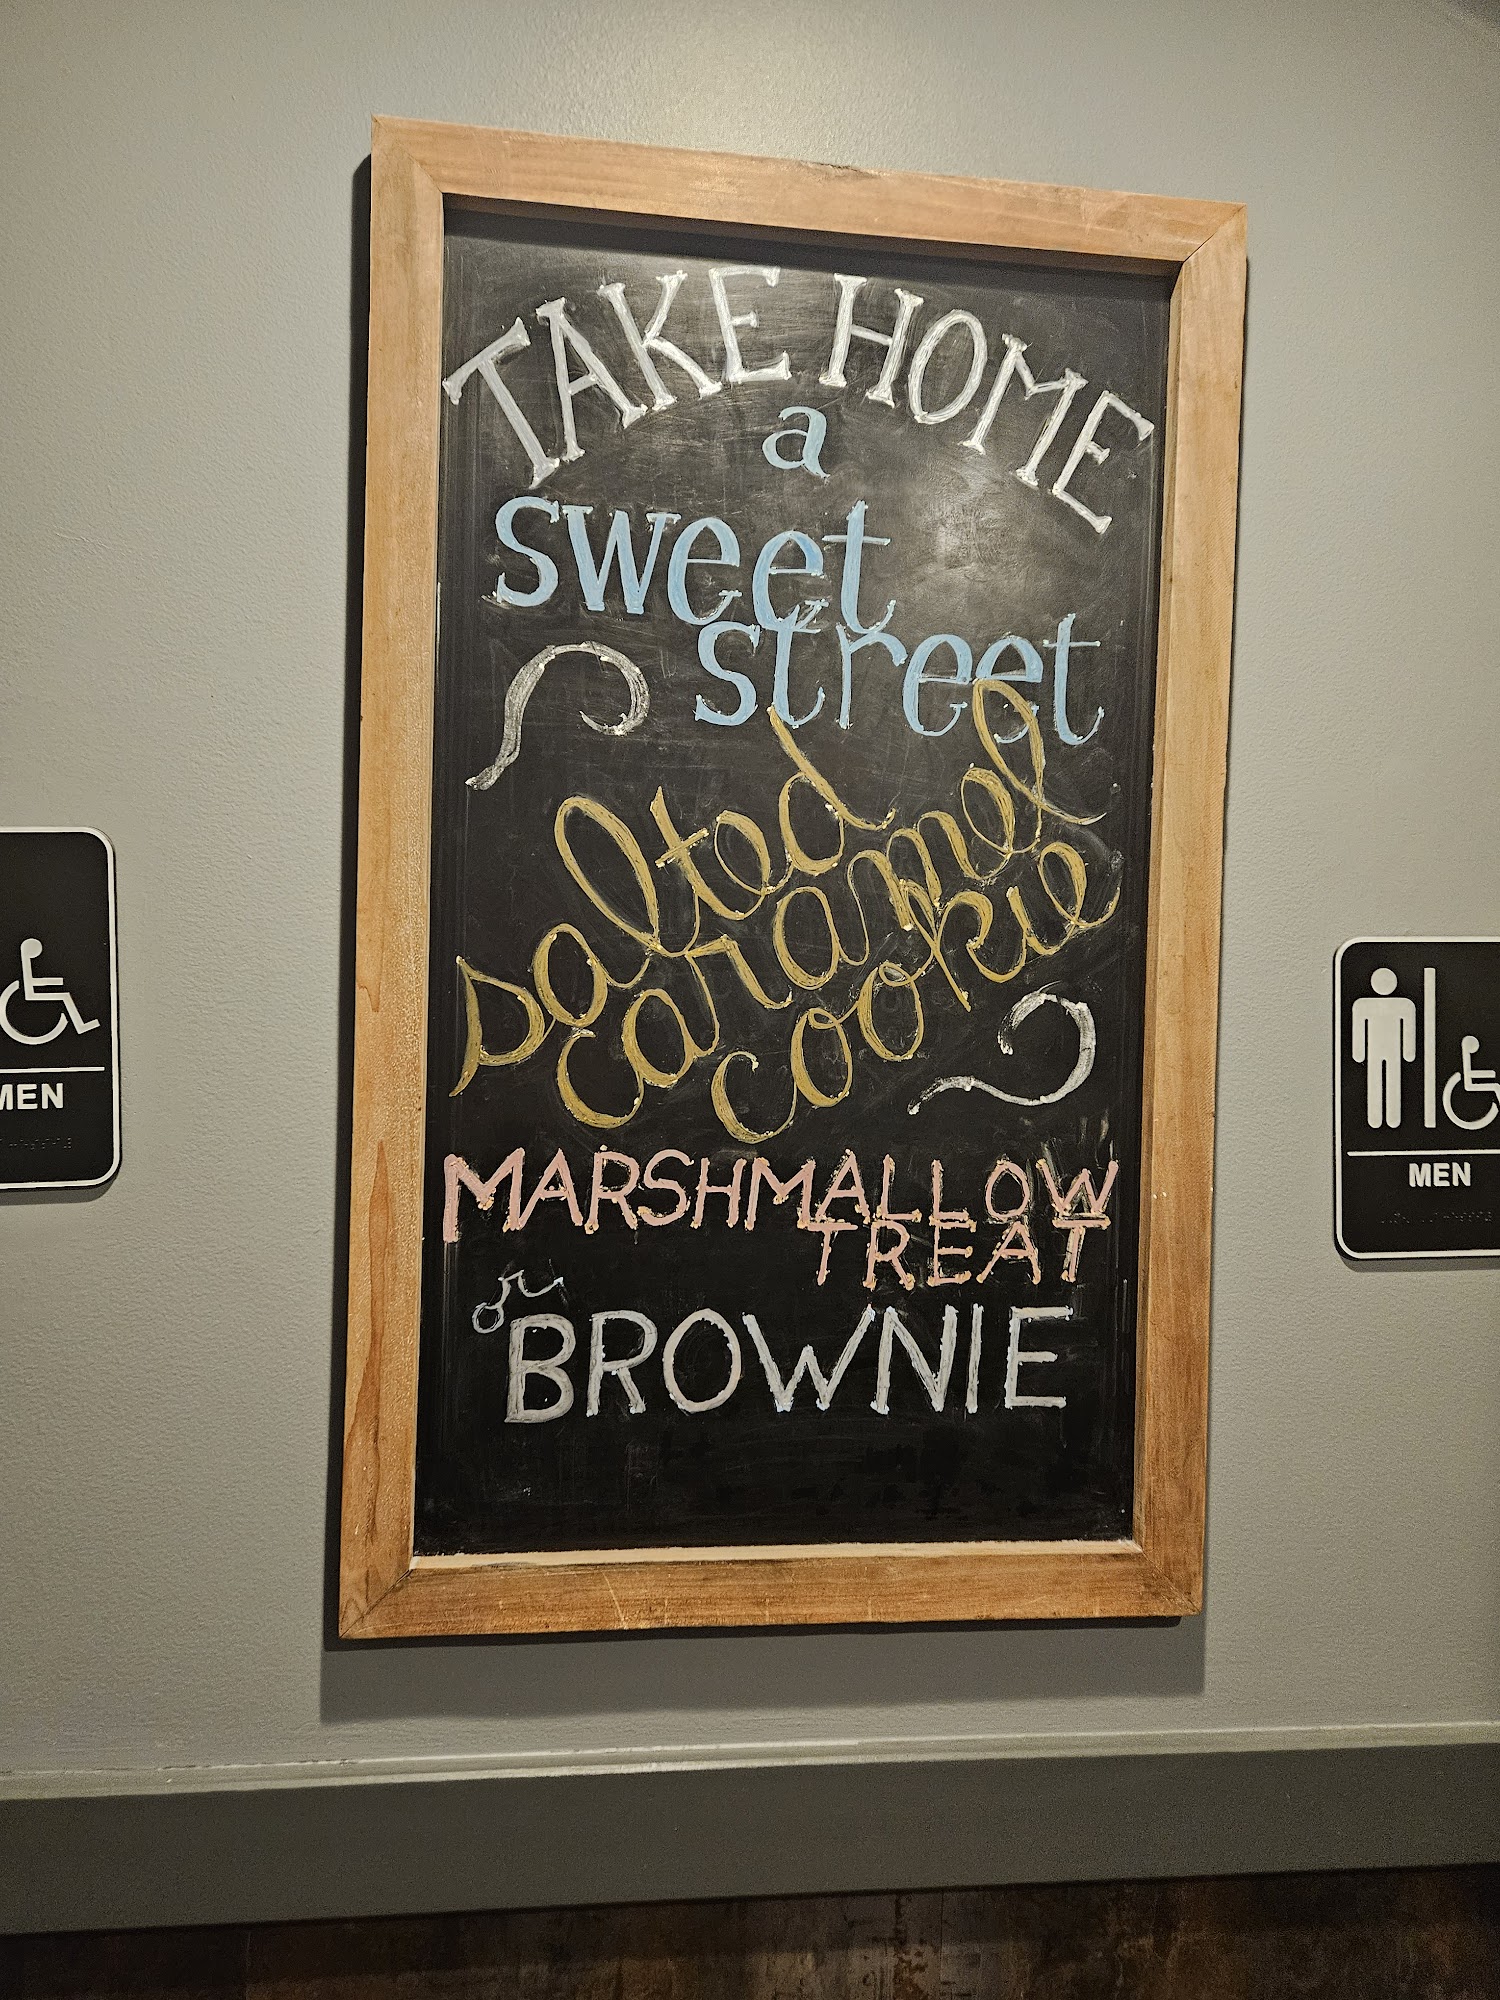 TAKE HOME
a
sweet
street
salted
caramel
cookie
MARSHMALLOW
TREAT
or
BROWNIE
MEN
MEN